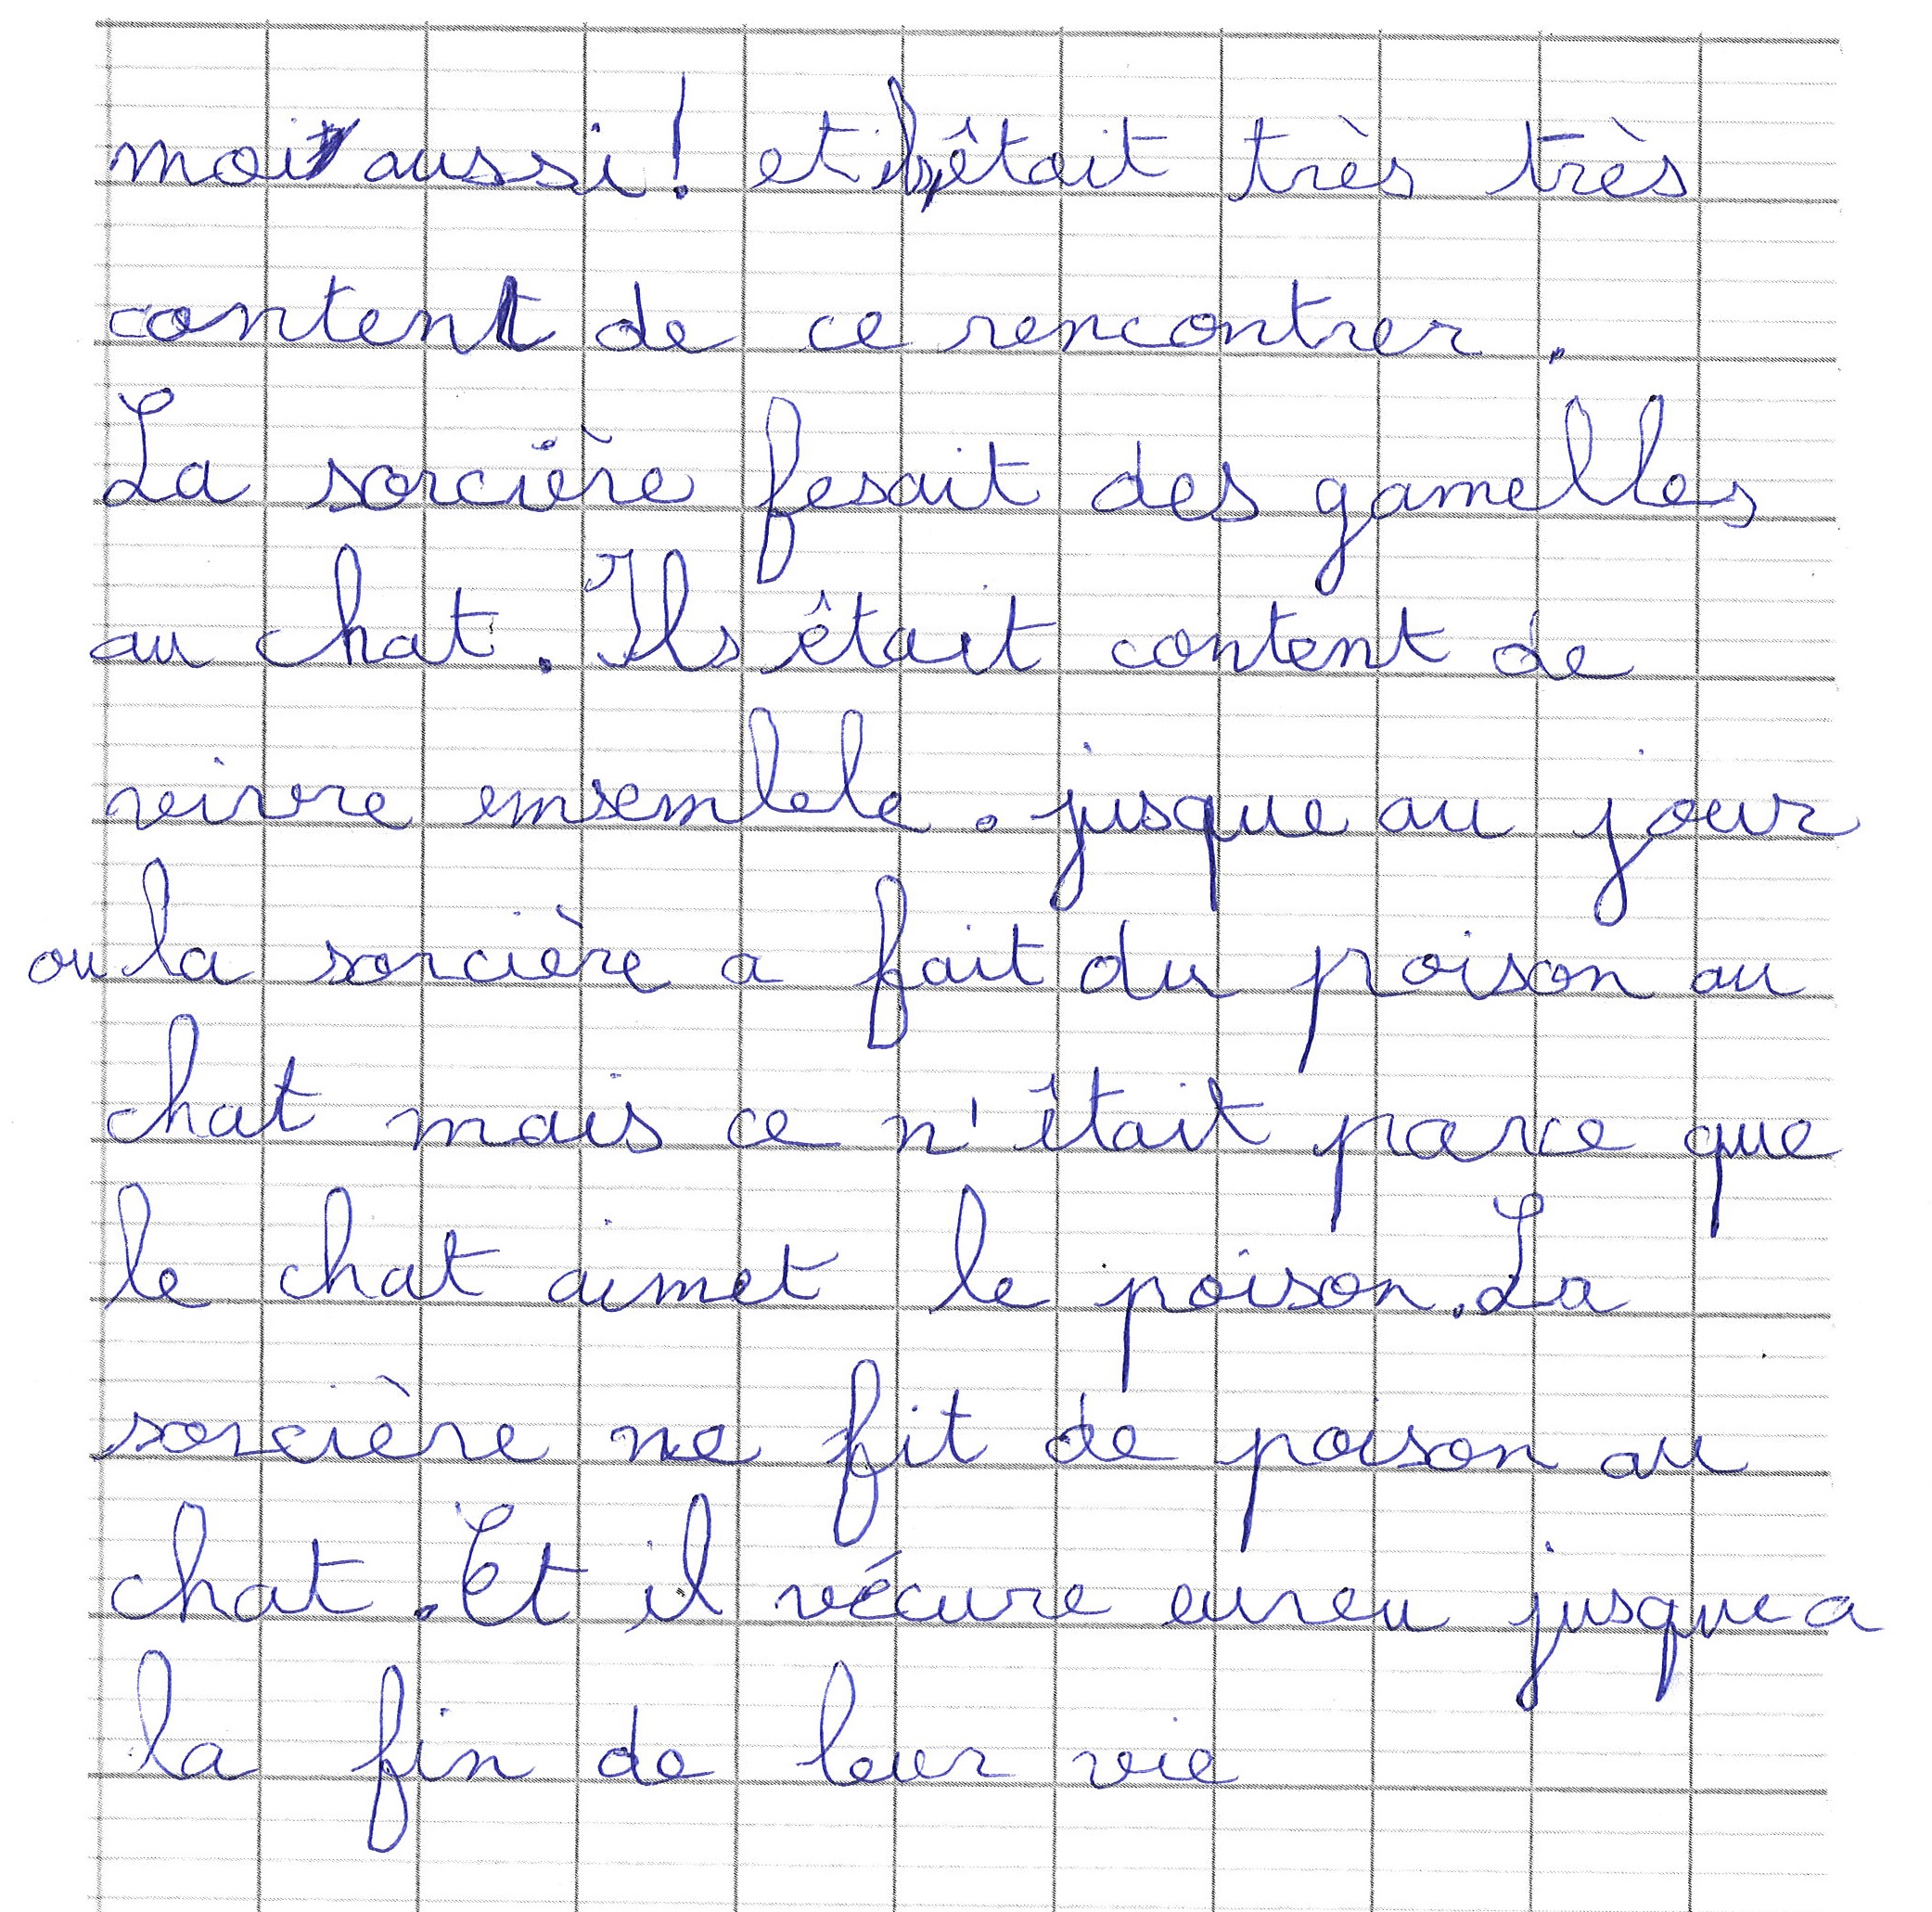 moi aussi ! et ils êtait très très
content de ce rencontrer .
La sorcière fesait des gamelles
au chat . Ils êtait content de
vivre ensemble . jusque au jour
ou la sorcière a fait du poison au
chat mais ce n' êtait parce que
le chat aimet le poison . La
sorcière ne fit de poison au
chat . Et il vécure eureu jusque a
la fin de leur vie